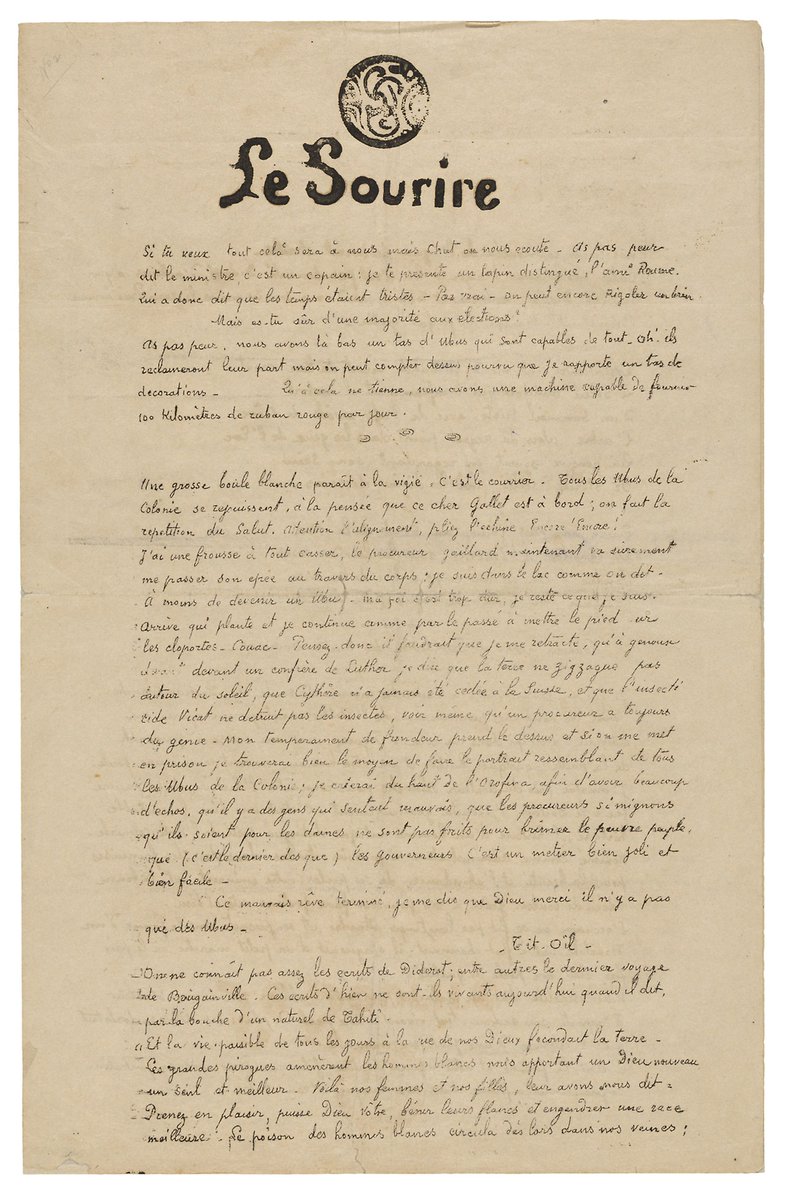 Le Sourire
Si tu veux tout cela sera à nous mais chut on nous ecoute - As pas peur
dit le ministre c'est un copain : je te presente un lapin distingué, l'ami Roume.
Qui a donc dit que les temps étaient tristes - Pas vrai - on peut encore Rigoler un brin.
Mais es-tu sûr d'une majorité aux elections?
As pas peur, nous avons là bas un tas d'Ubus qui sont capables de tout - Oh! ils
reclameront leur part mais on peut compter dessus pourvu que je rapporte un tas de
decorations - Qu'à cela ne tienne, nous avons une machine capable de fournir
100 Kilomètres de ruban rouge par jour.
Une grosse boule blanche paraît à la vigie, c'est le courrier. Tous les Ubus de la
Colonie se rejouissent, à la pensée que ce cher Gallet est à bord; on fait la
repetition du Salut. Atention l'alignement, pliez l'echine Encore! Encore!
J'ai une frousse à tout casser, le procureur gaillard maintenant va surement
me passer son epée au travers du corps; je suis dans le lac comme on dit -
A moins de devenir un Ubu - ma foi c'est trop dur, je reste ce que je suis.
Arrive qui plante et je continue comme par le passé à mettre le pied sur
les cloportes - Couac - Pensez donc il faudrait que je me retracte, qu'à genoux
devant un confrère de Luther je dise que la terre ne zizzague pas
autour du soleil, que Cythère n'a jamais été cedée à la Suisse, et que l'insecti
cide Vicat ne detruit pas les insectes, voir même, qu'un procureur a toujours
du genie - Mon temperament de frondeur prend le dessus et si on me met
en prison je trouverai bien le moyen de faire le portrait ressemblant de tous
les Ubus de la Colonie; je crierai du haut de l'Orofena, afin d'avoir beaucoup
d'echos, qu'il y a des gens qui sentent mauvais, que les procureurs si mignons
qu'ils soient pour les dames ne sont pas faits pour brimer le pauvre peuple,
que (c'est le dernier des que) les gouverneurs c'est un metier bien joli et
bien facile -
Ce mauvais rêve terminé, je me dis que Dieu merci il n'y a pas
que des Ubus -
- Tit-Oïl -
On ne connaît pas assez les ecrits de Diderot; entre autres le dernier voyage
de Bougainville. Ces ecrits d'hier ne sont-ils vivants aujourd'hui quand il dit,
par la bouche d'un naturel de Tahiti.
Et la vie paisible de tous les jours à la vue de nos Dieux fecondait la terre -
Les grandes pirogues amenèrent les hommes blancs nous apportant un Dieu nouveau
un seul et meilleur. Voilà nos femmes et nos filles, leur avons nous dit =
Prenez en plaisir, puisse Dieu vôtre, bénir leurs flancs et engendrer une race
meilleure. Le poison des hommes blancs circula dès lors dans nos veines;